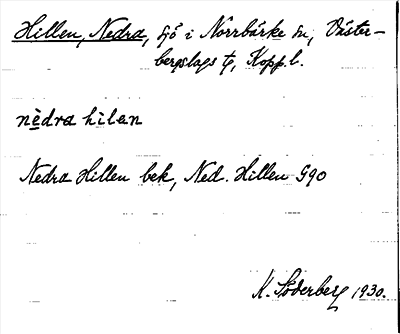 Hillen, Nedra, sjö i Norrbärke sn, Väster-
bergslags tg, Kopp.l.
nèdra hilan
Nedra Hillen bek, Ned. Hillen G90
K. Söderberg 1930.